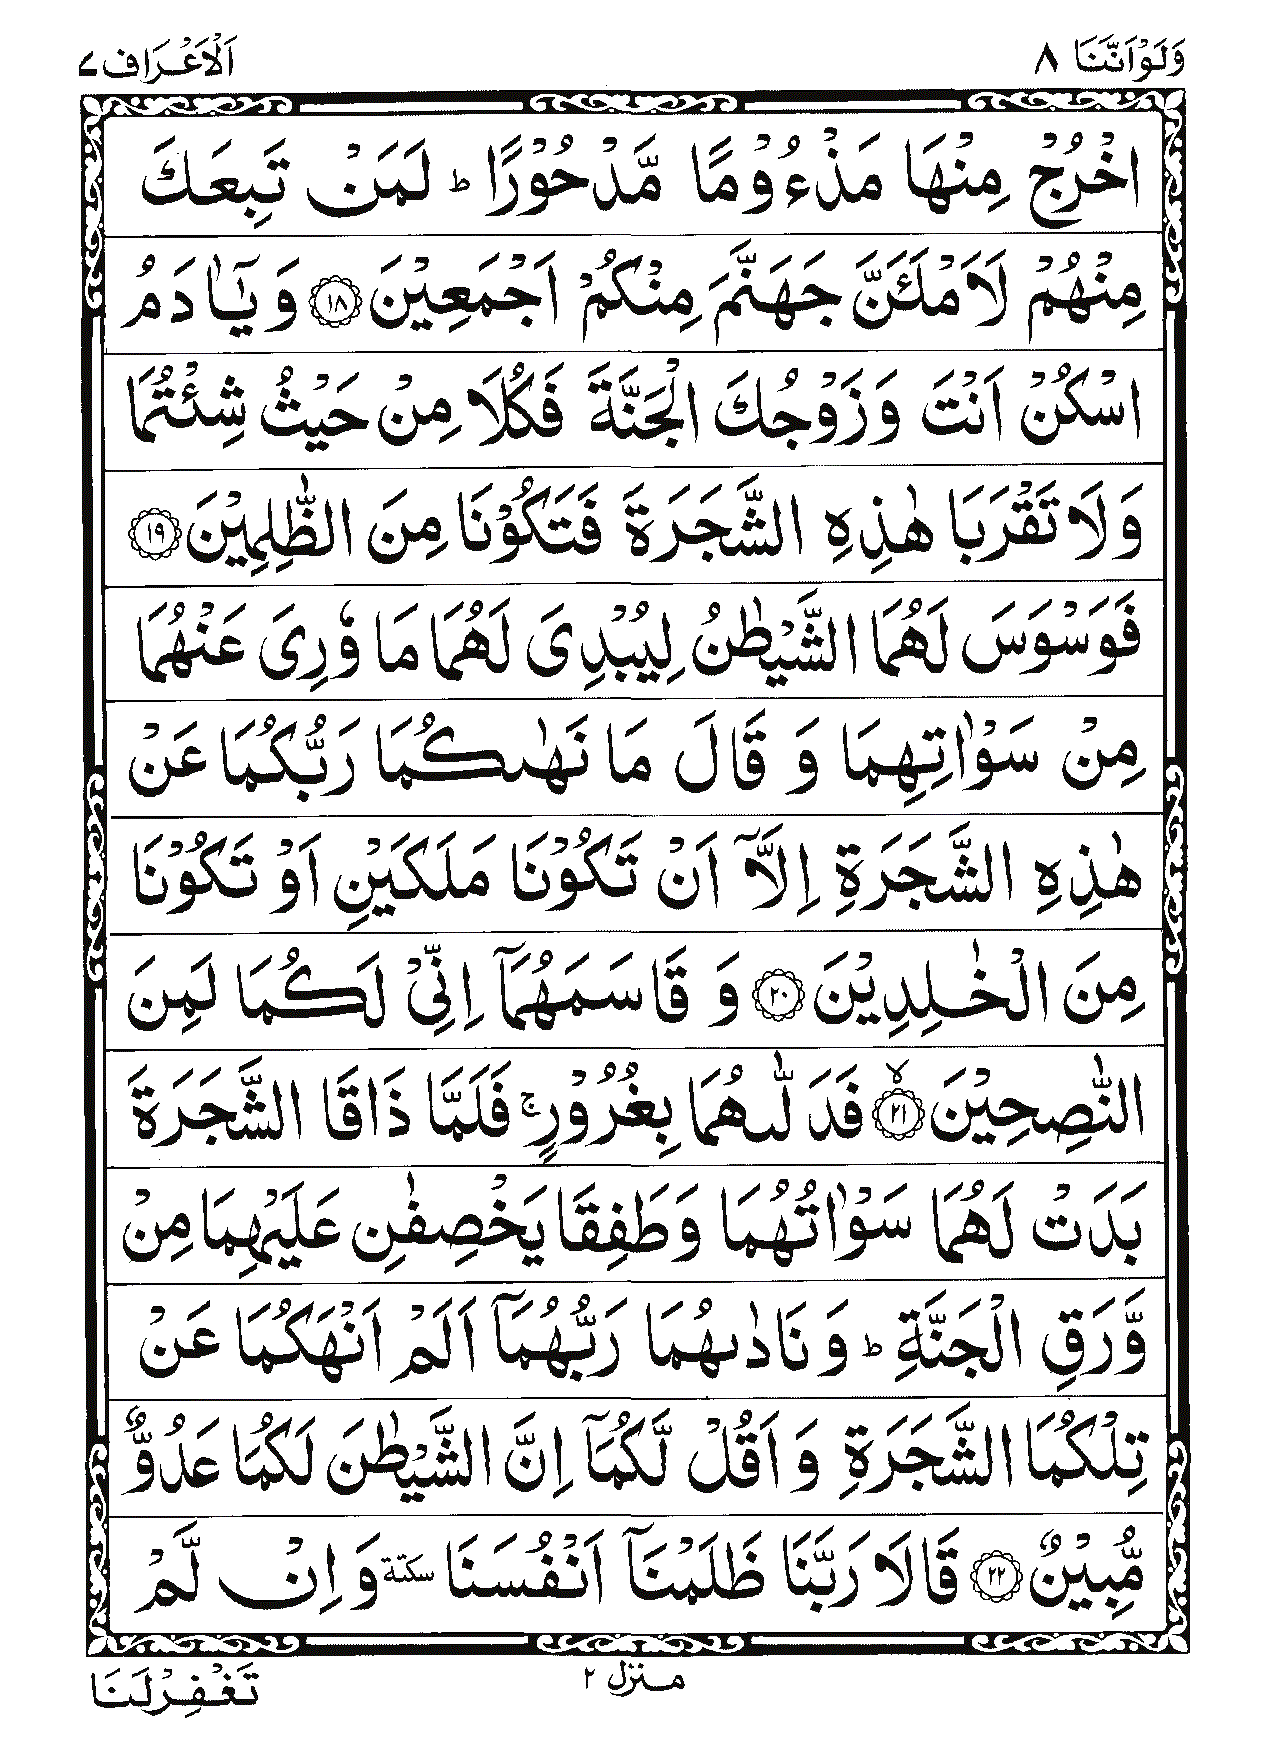 وَلَوْاَنَّنَا ٨
اَلْاَعْرَاف ٧
اخْرُجْ مِنْهَا مَذْءُوْمًا مَّدْحُوْرًا ؕ لَمَنْ تَبِعَكَ
مِنْهُمْ لَاَمْلَـَٔنَّ جَهَنَّمَ مِنْكُمْ اَجْمَعِيْنَ ﴿۱۸﴾ وَ يٰۤاٰدَمُ
اسْكُنْ اَنْتَ وَزَوْجُكَ الْجَنَّةَ فَكُلَا مِنْ حَيْثُ شِئْتُمَا
وَلَا تَقْرَبَا هٰذِهِ الشَّجَرَةَ فَتَكُوْنَا مِنَ الظّٰلِمِيْنَ ﴿۱۹﴾
فَوَسْوَسَ لَهُمَا الشَّيْطٰنُ لِيُبْدِىَ لَهُمَا مَا وٗرِىَ عَنْهُمَا
مِنْ سَوْاٰتِهِمَا وَ قَالَ مَا نَهٰىكُمَا رَبُّكُمَا عَنْ
هٰذِهِ الشَّجَرَةِ اِلَّاۤ اَنْ تَكُوْنَا مَلَكَيْنِ اَوْ تَكُوْنَا
مِنَ الْخٰلِدِيْنَ ﴿۲۰﴾ وَ قَاسَمَهُمَاۤ اِنِّىْ لَكُمَا لَمِنَ
النّٰصِحِيْنَ ۙ﴿۲۱﴾ فَدَلّٰىهُمَا بِغُرُوْرٍ ۚ فَلَمَّا ذَاقَا الشَّجَرَةَ
بَدَتْ لَهُمَا سَوْاٰتُهُمَا وَطَفِقَا يَخْصِفٰنِ عَلَيْهِمَا مِنْ
وَّرَقِ الْجَنَّةِ ؕ وَ نَادٰىهُمَا رَبُّهُمَاۤ اَلَمْ اَنْهَكُمَا عَنْ
تِلْكُمَا الشَّجَرَةِ وَ اَقُلْ لَّكُمَاۤ اِنَّ الشَّيْطٰنَ لَكُمَا عَدُوٌّ
مُّبِيْنٌ ﴿۲۲﴾ قَالَا رَبَّنَا ظَلَمْنَاۤ اَنْفُسَنَا سكتة وَ اِنْ لَّمْ
منزل ٢
تَغْفِرْلَنَا